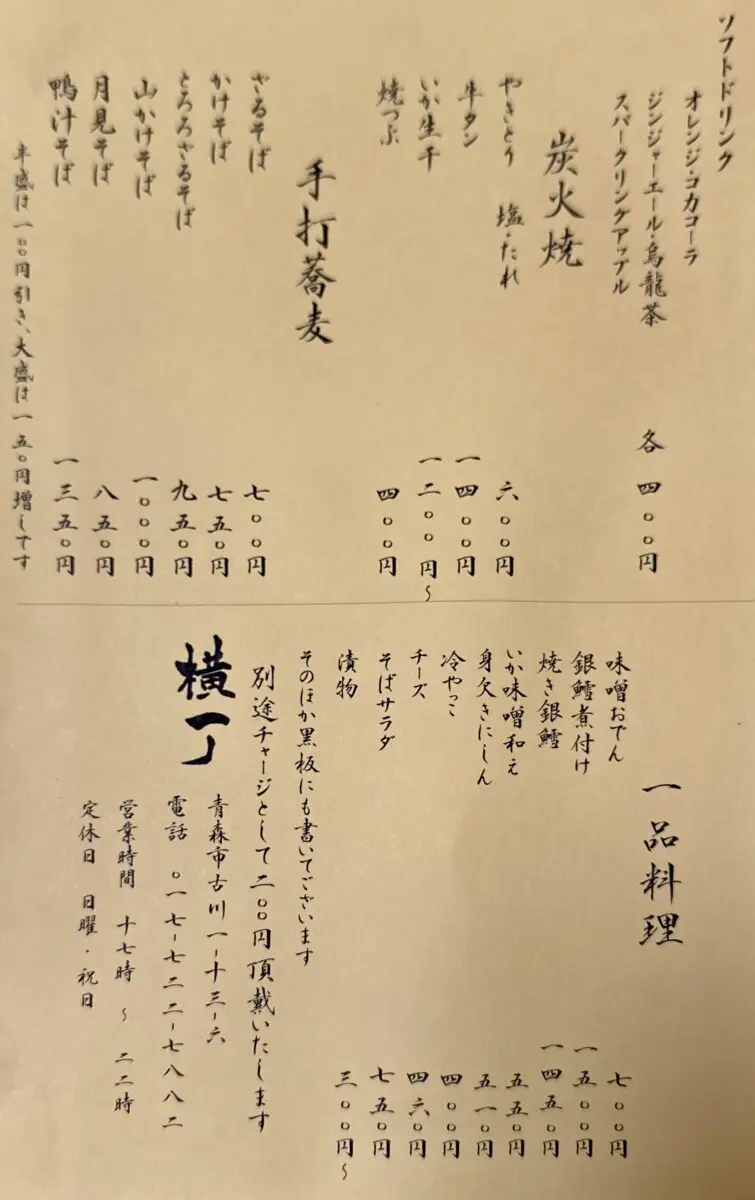 ソフトドリンク
オレンジ・コカコーラ
ジンジャーエール・烏龍茶 各 四〇〇円
スパークリングアップル
炭火焼
やきとり 塩・たれ 六〇〇円
牛タン 一四〇〇円
いか生干 一二〇〇円~
焼つぶ 四〇〇円
手打蕎麦
ざるそば 七〇〇円
かけそば 七五〇円
とろろざるそば 九五〇円
山かけそば 一〇〇〇円
月見そば 八五〇円
鴨汁そば 一三五〇円
半盛は一〇〇円引き、大盛は一五〇円増しです
一品料理
味噌おでん 七〇〇円
銀鱈煮付け 一五〇〇円
焼き銀鱈 一四五〇円
いか味噌和え 五五〇円
身欠きにしん 五一〇円
冷やっこ 四〇〇円
チーズ 四六〇円
そばサラダ 七五〇円
漬物 三〇〇円~
そのほか黒板にも書いてございます
別途チャージとして二〇〇円頂戴いたします
横丁
青森市古川一-十三-六
電話 〇一七-七二二-七八八二
営業時間 十七時 ~ 二二時
定休日 日曜・祝日